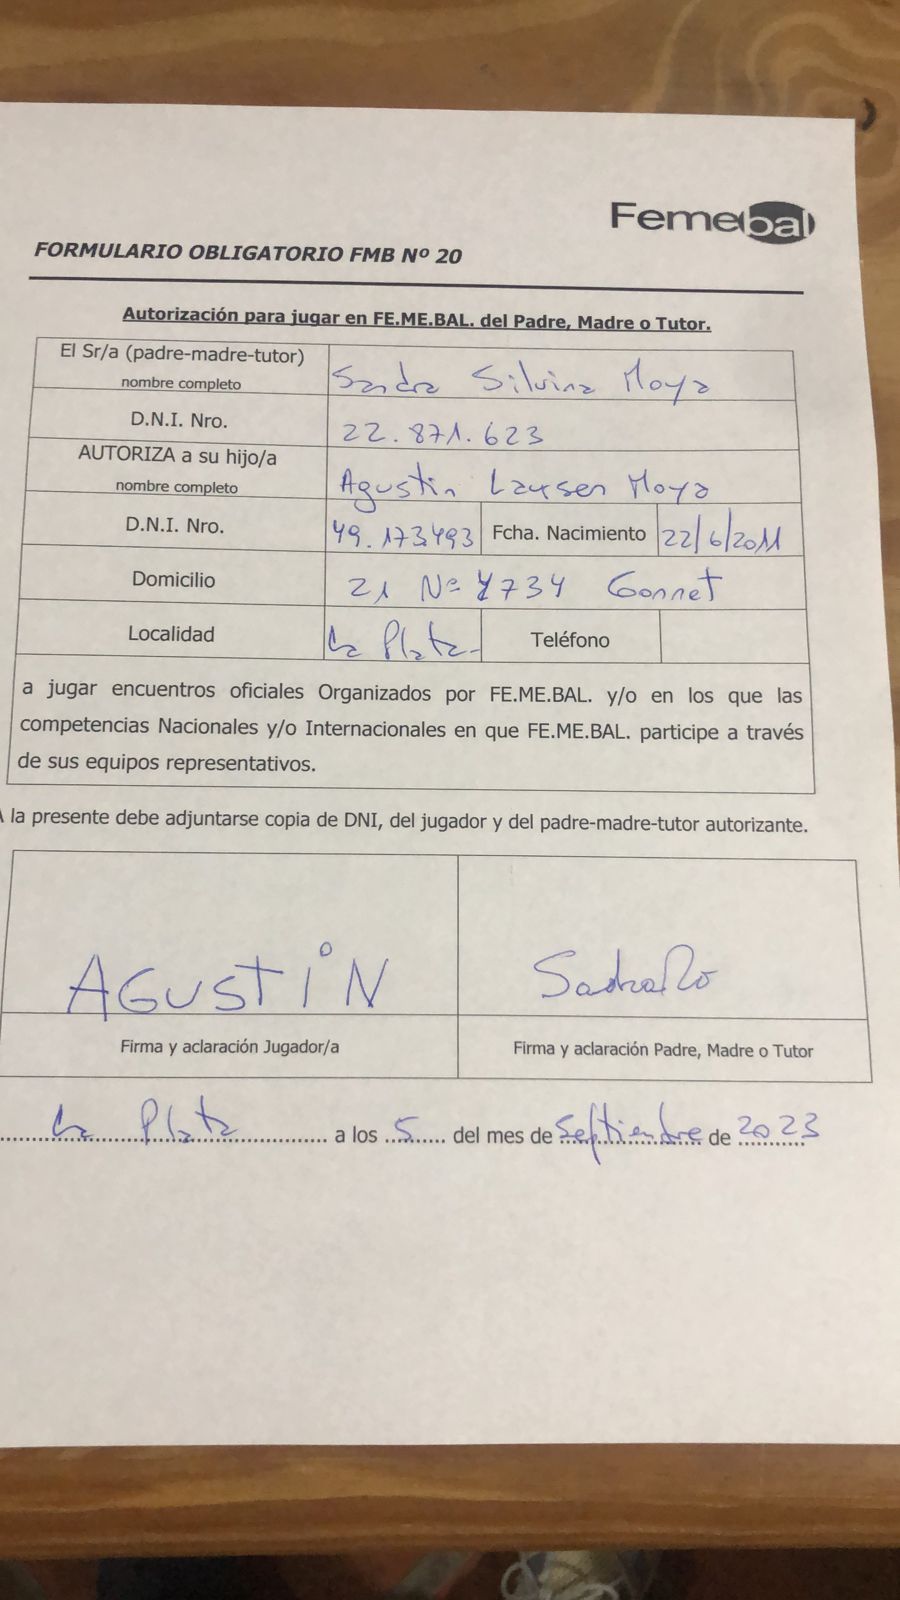 Femebal
FORMULARIO OBLIGATORIO FMB Nº 20
Autorización para jugar en FE.ME.BAL. del Padre, Madre o Tutor.
El Sr/a (padre-madre-tutor)
nombre completo
Sandra Silvina Moya
D.N.I. Nro.
22.871.623
AUTORIZA a su hijo/a
nombre completo
Agustin Laysen Moya
D.N.I. Nro.
49.173.493
Fcha. Nacimiento
22/6/2011
Domicilio
21 Nº 4734 Gonnet
Localidad
La Plata
Teléfono
a jugar encuentros oficiales Organizados por FE.ME.BAL. y/o en los que las
competencias Nacionales y/o Internacionales en que FE.ME.BAL. participe a través
de sus equipos representativos.
A la presente debe adjuntarse copia de DNI, del jugador y del padre-madre-tutor autorizante.
AGUSTIN
Firma y aclaración Jugador/a
Firma y aclaración Padre, Madre o Tutor
La Plata a los 5 del mes de Septiembre de 2023